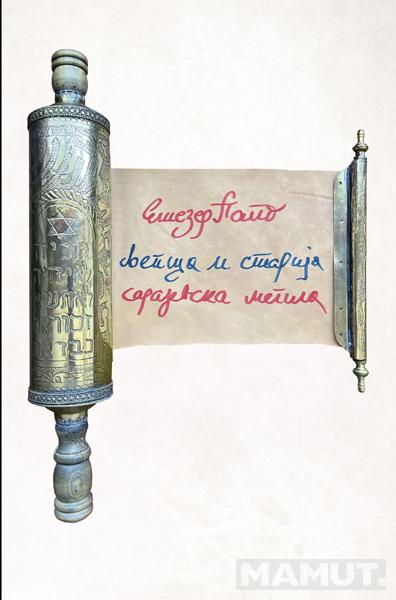 Елиезер Папо
љепша и старија
сарајевска мегила
MAMUT.